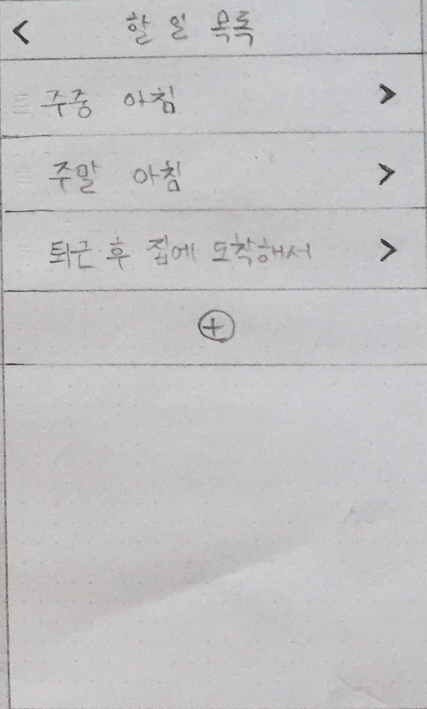 < 할 일 목록
주중 아침 >
주말 아침 >
퇴근 후 집에 도착해서 >
+